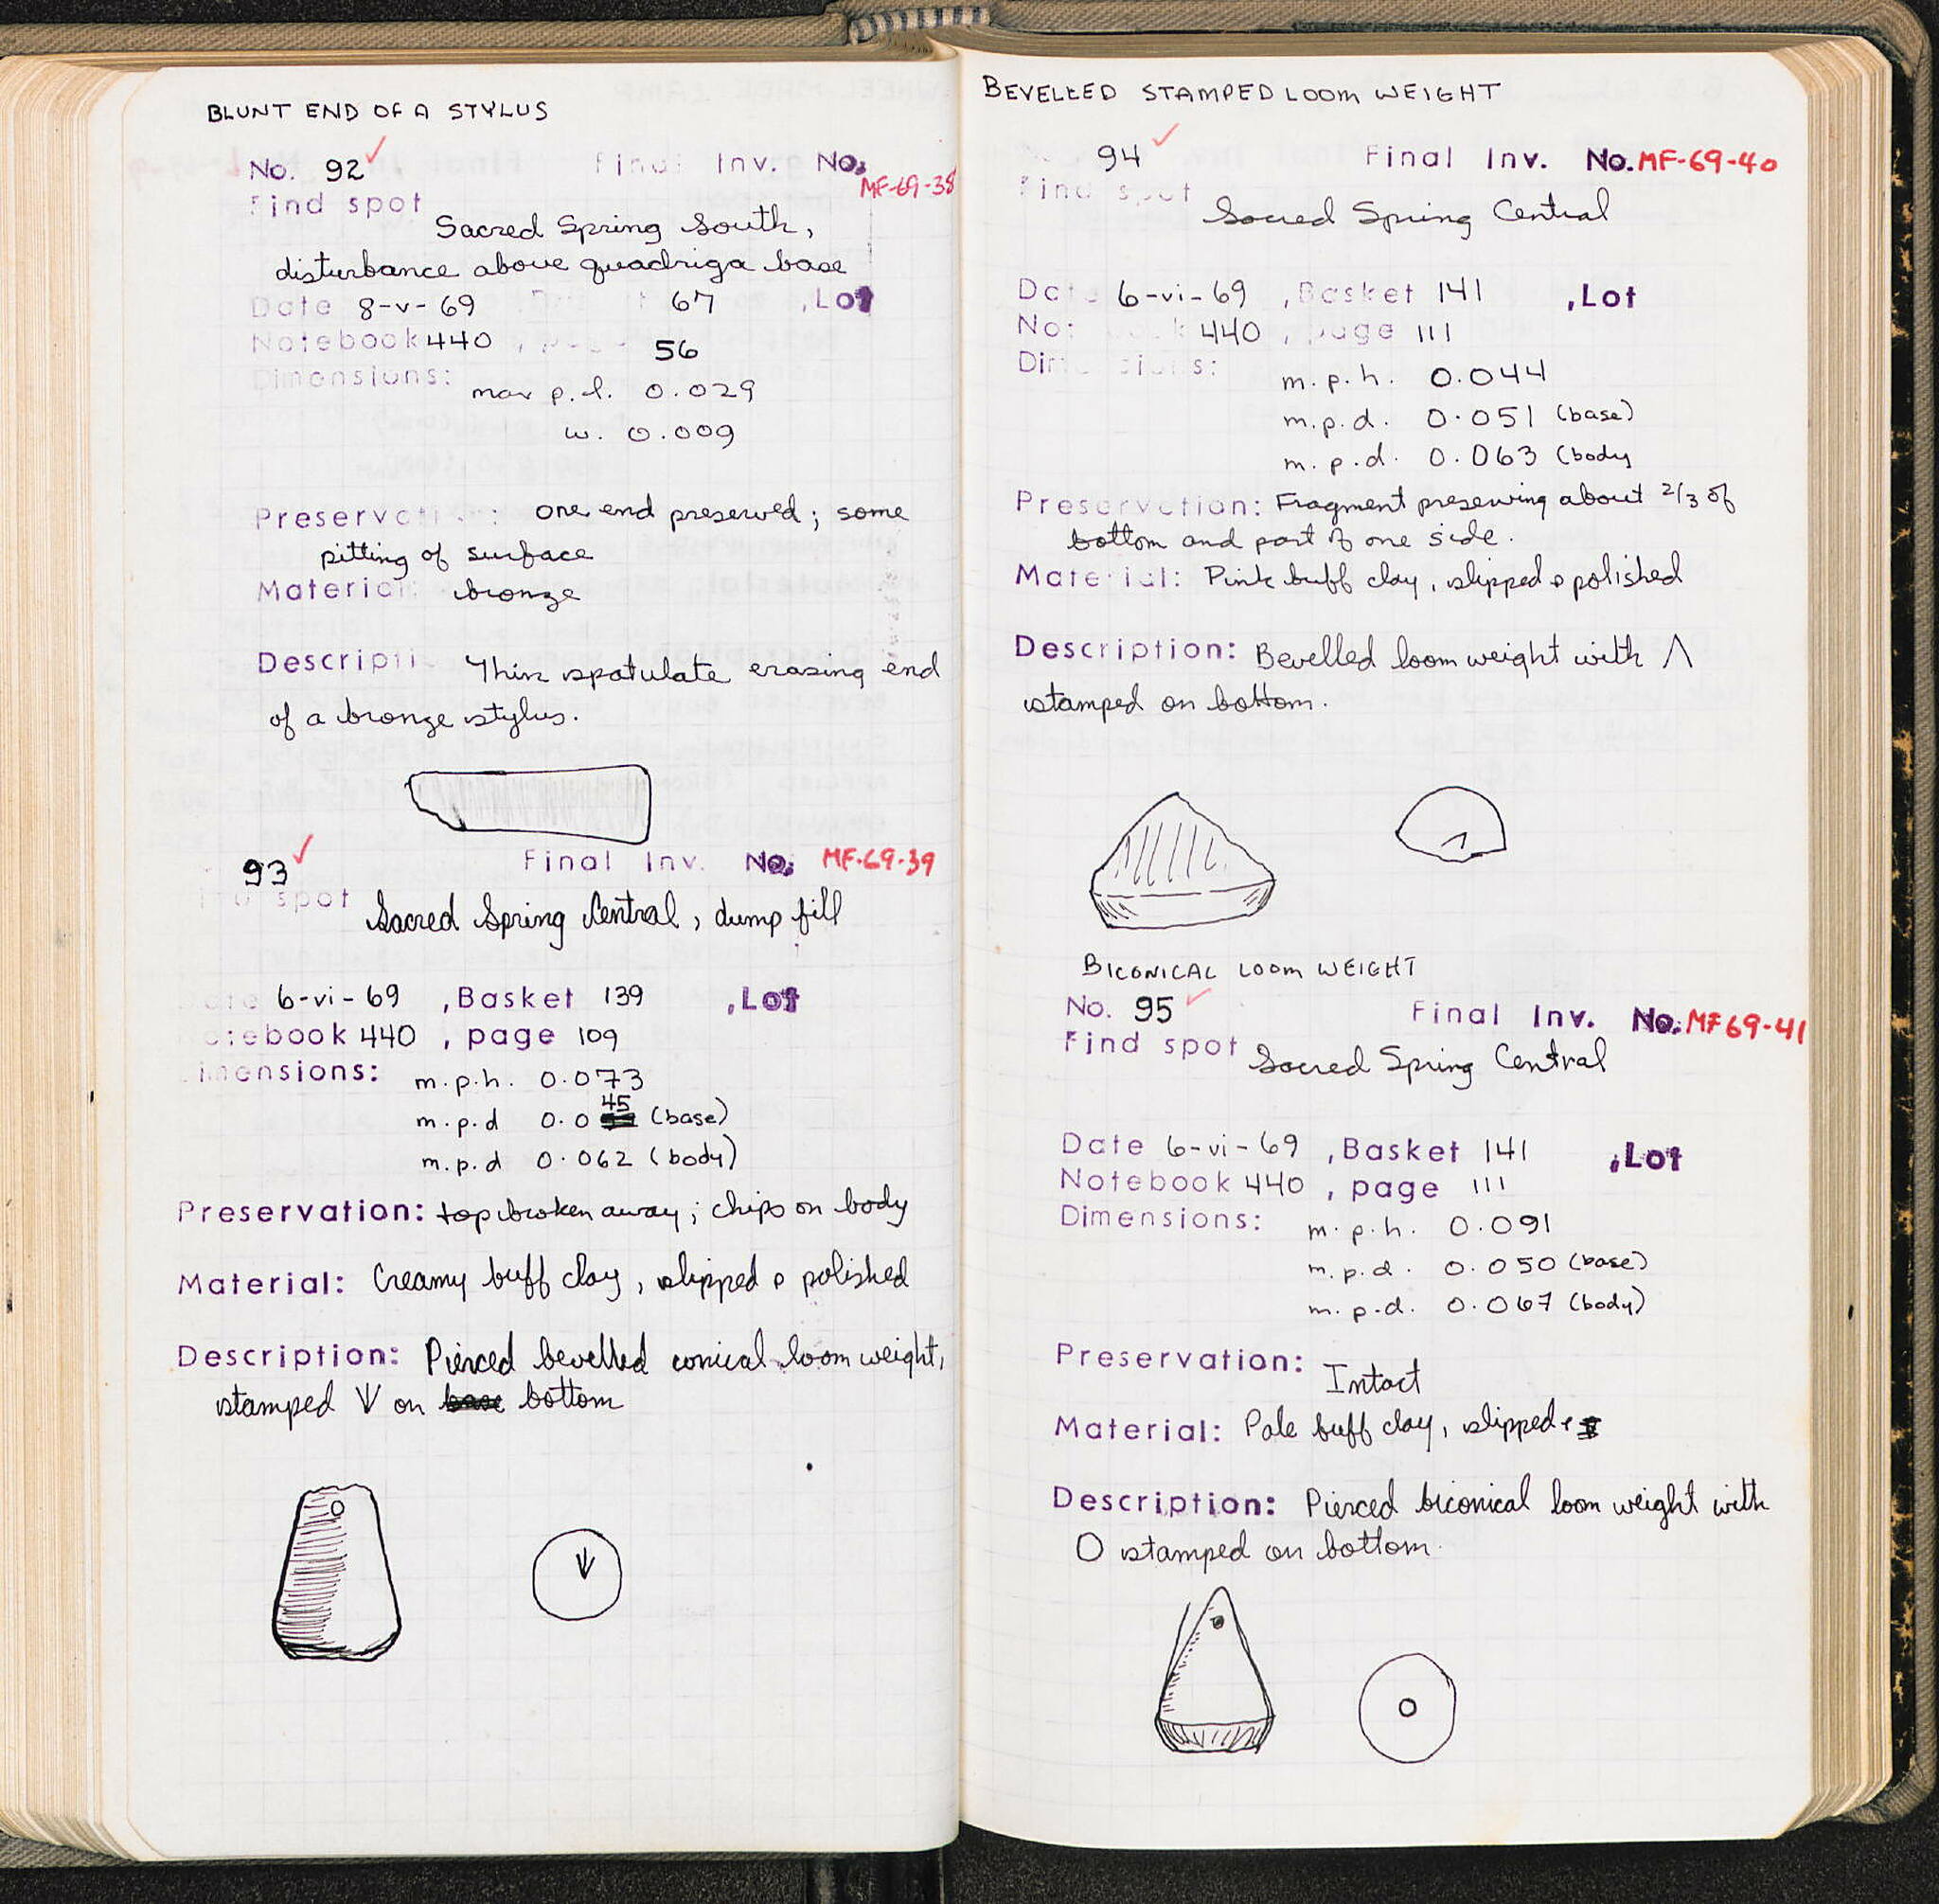 BLUNT END OF A STYLUS
No. 92 ✓ Final Inv. No. MF-69-38
Find spot Sacred Spring South,
disturbance above quadriga base
Date 8-v-69 67 , Lot
Notebook 440 , page 56
Dimensions: max p.l. 0.029
w. 0.009
Preservation: one end preserved; some
pitting of surface
Material: bronze
Description: Thin spatulate erasing end
of a bronze stylus.
93 ✓ Final Inv. No. MF-69-39
Find spot Sacred Spring Central, dump fill
Date 6-vi-69 , Basket 139 , Lot
Notebook 440 , page 109
Dimensions: m.p.h. 0.073
m.p.d 0.045 (base)
m.p.d 0.062 (body)
Preservation: top broken away; chips on body
Material: Creamy buff clay, slipped & polished
Description: Pierced bevelled conical loom weight,
stamped ↓ on base bottom
BEVELLED STAMPED LOOM WEIGHT
94 ✓ Final Inv. No. MF-69-40
Find spot Sacred Spring Central
Date 6-vi-69 , Basket 141 , Lot
Notebook 440 , page 111
Dimensions: m.p.h. 0.044
m.p.d. 0.051 (base)
m.p.d. 0.063 (body
Preservation: Fragment preserving about 2/3 of
bottom and part of one side.
Material: Pink buff clay, slipped & polished
Description: Bevelled loom weight with Λ
stamped on bottom.
BICONICAL LOOM WEIGHT
No. 95 ✓ Final Inv. No. MF69-41
Find spot Sacred Spring Central
Date 6-vi-69 , Basket 141 , Lot
Notebook 440 , page 111
Dimensions: m.p.h. 0.091
m.p.d. 0.050 (base)
m.p.d. 0.067 (body)
Preservation: Intact
Material: Pale buff clay, slipped &
Description: Pierced biconical loom weight with
O stamped on bottom.